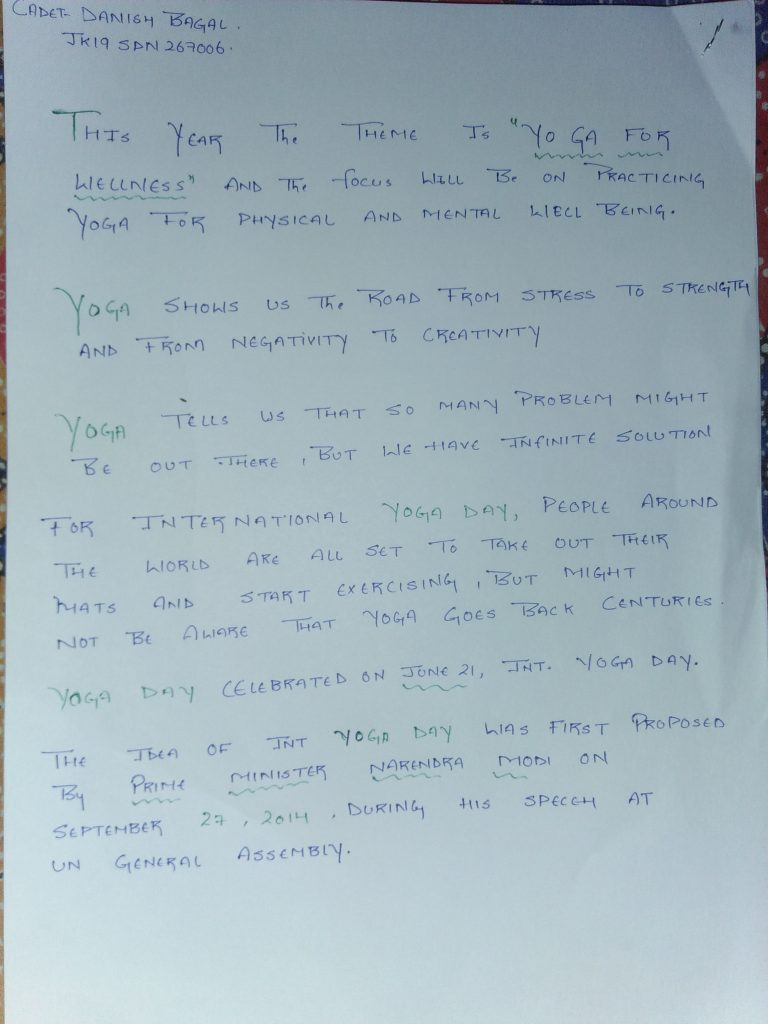 CADET DANISH BAGAL.
JK19 SDN 267006.
THIS YEAR The THEME IS "YOGA FOR
WELLNESS" AND The focus WILL Be ON PRACTICING
YOGA FOR PHYSICAL AND MENTAL WELL BEING.
YOGA SHOWS US The ROAD FROM STRESS TO STRENGTH
AND FROM NEGATiViTY TO CREATIVITY
YOGA TELLS US THAT SO MANY PROBLEM MIGHT
BE OUT THERE, BUT WE HAVE INFINITE SOLUTION
FOR INTERNATIONAL YOGA DAY, PEOPLE AROUND
THE WORLD ARE ALL SET TO TAKE OUT THEIR
MATS AND START EXERCISING, BUT MIGHT
NOT BE AWARE THAT YOGA GOES BACK CENTURIES.
YOGA DAY CELEBRATED ON JUNE 21, INT. YOGA DAY.
THE IDEA OF INT YOGA DAY WAS FIRST PROPOSED
By PRIME MINISTER NARENDRA MODI ON
SEPTEMBER 27, 2014, DURING HIS SPEECH AT
UN GENERAL ASSEMBLY.